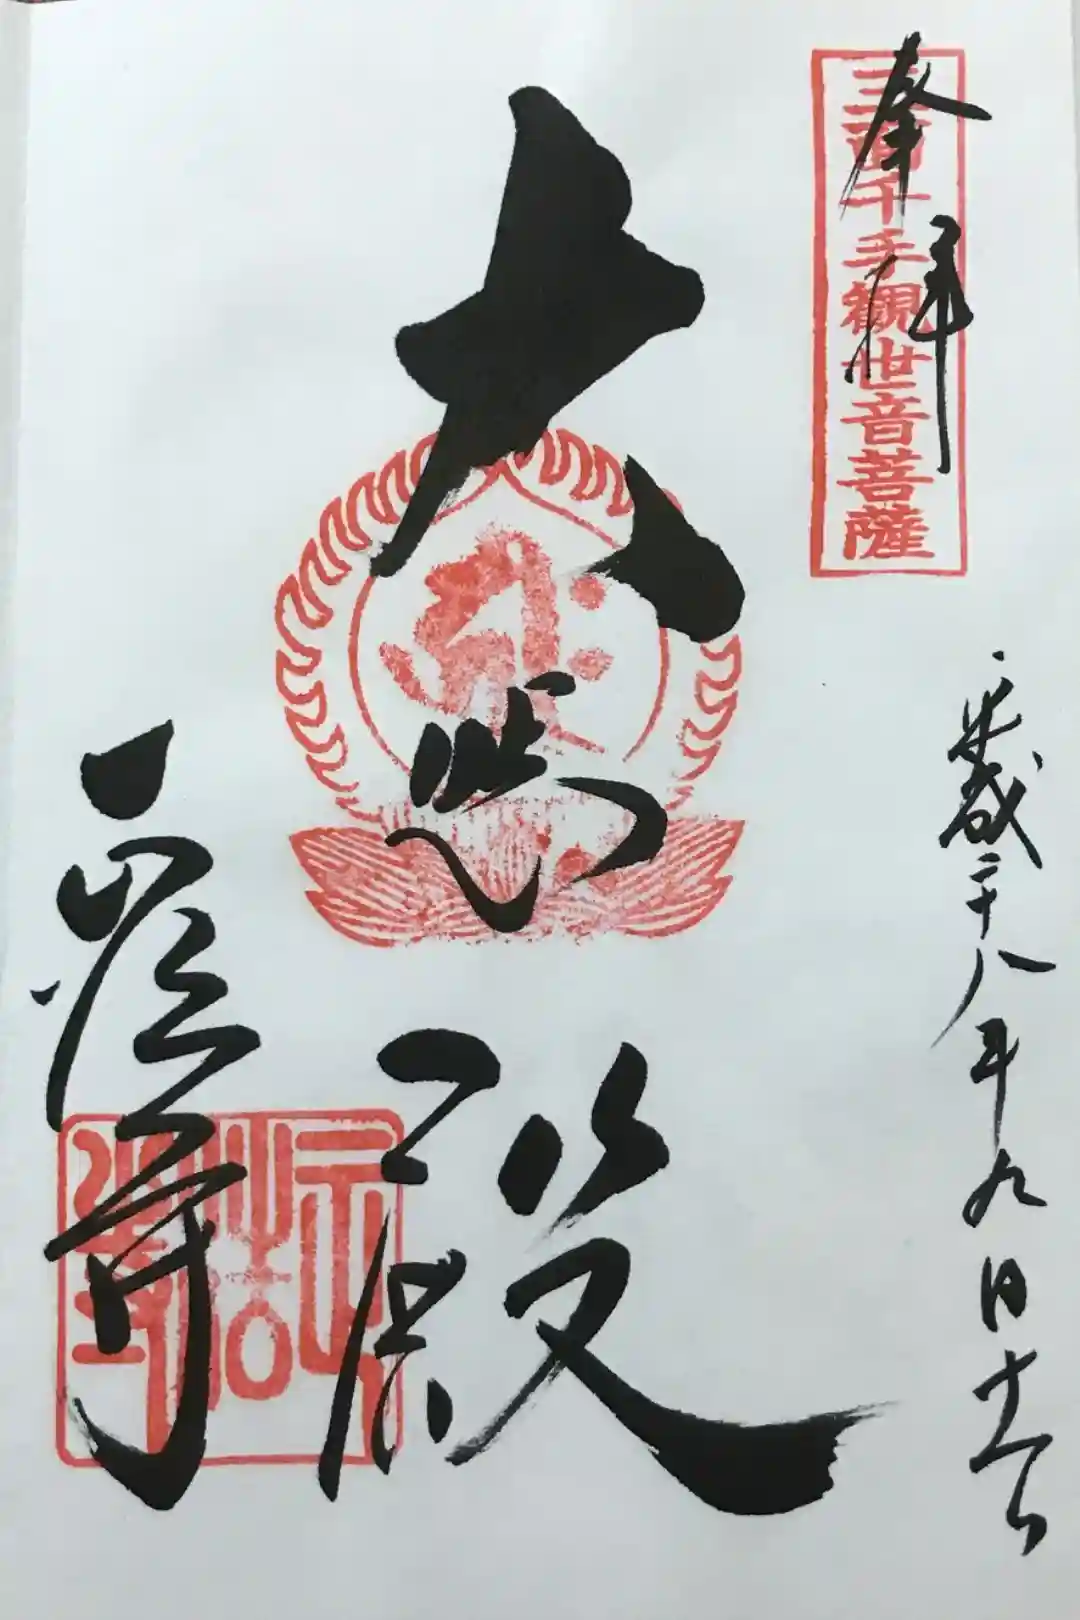 奉拝
三面千手観世音菩薩
平成二十八年九月十六日
大悲殿